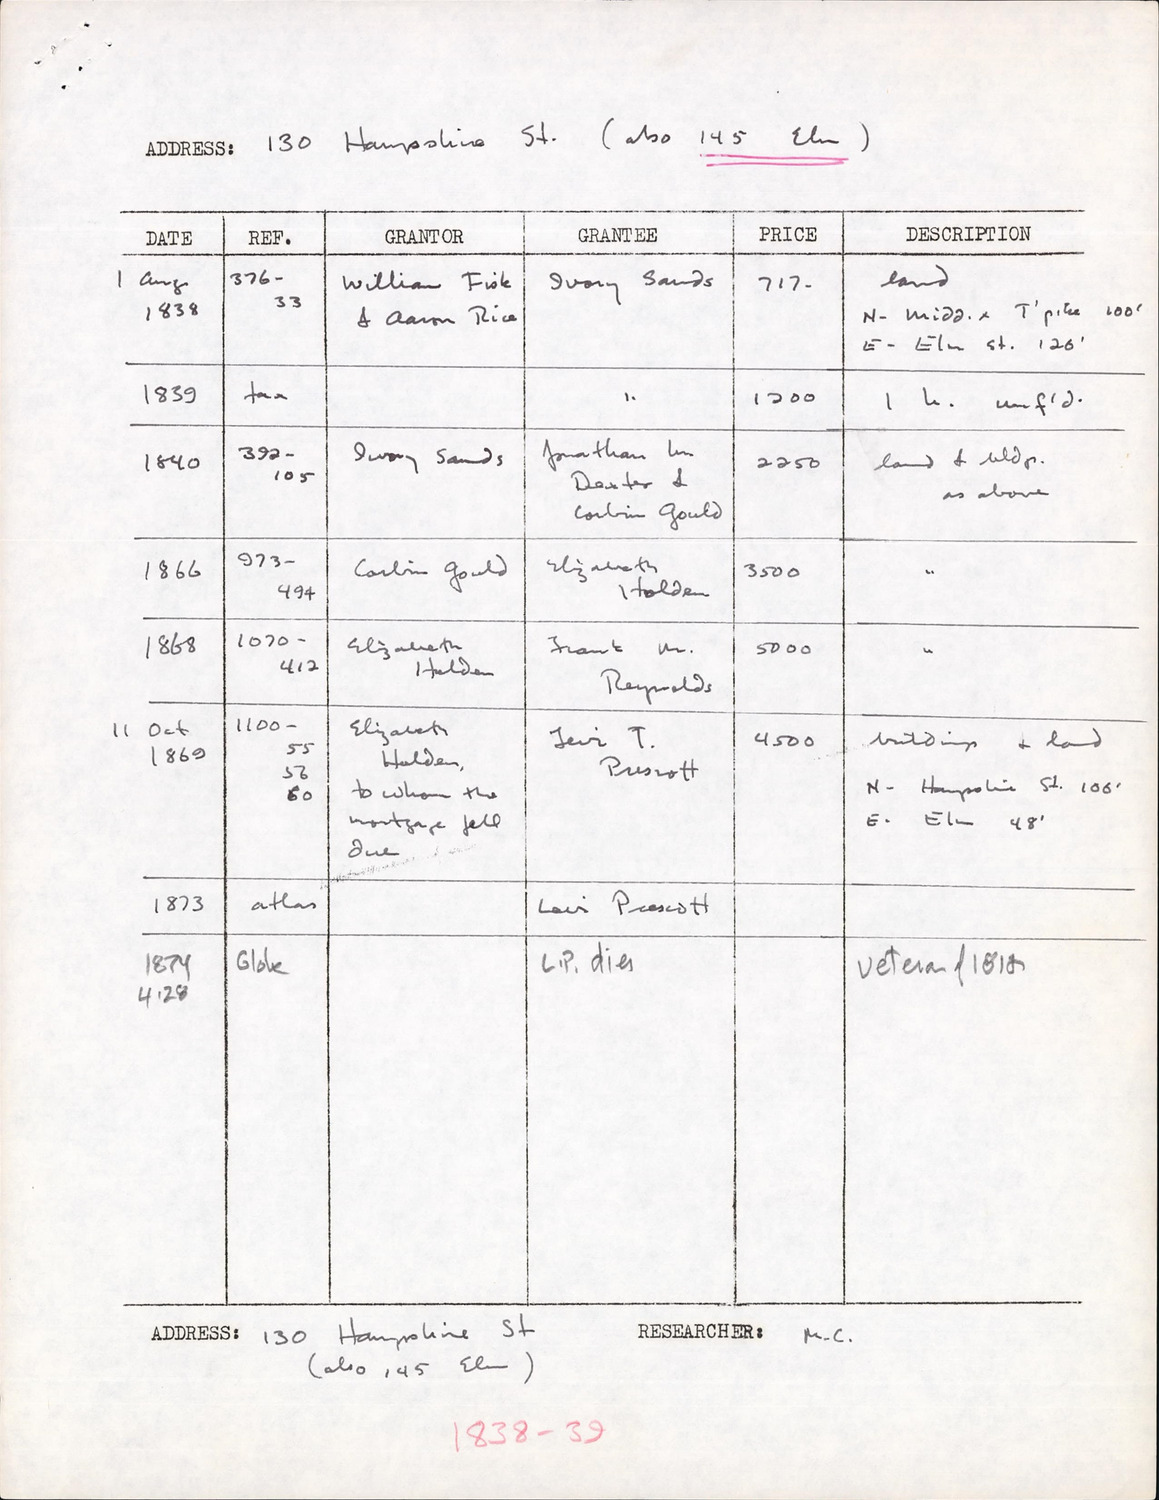 ADDRESS: 130 Hampshire St. (also 145 Elm)
DATE REF. GRANTOR GRANTEE PRICE DESCRIPTION
1 Aug 1838 376-33 William Fisk & Aaron Rice Ivory Sands 717- land
N- Midd.x T'pike 100'
E- Elm St. 126'
1839 tax " 1200 1 h. unf'd.
1840 392-105 Ivory Sands Jonathan M Dexter & Corbin Gould 2250 land & bldgs. as above
1866 973-494 Corbin Gould Elizabeth Holden 3500 "
1868 1070-412 Elizabeth Holden Frank M. Reynolds 5000 "
11 Oct 1869 1100-55 56 60 Elizabeth Holden, to whom the mortgage fell due Levi T. Prescott 4500 buildings & land
N- Hampshire St. 106'
E. Elm 48'
1873 atlas Levi Prescott
1874 4.28 Globe L.P. dies veteran of 1812
ADDRESS: 130 Hampshire St RESEARCHER: M.C.
(also 145 Elm)
1838-39